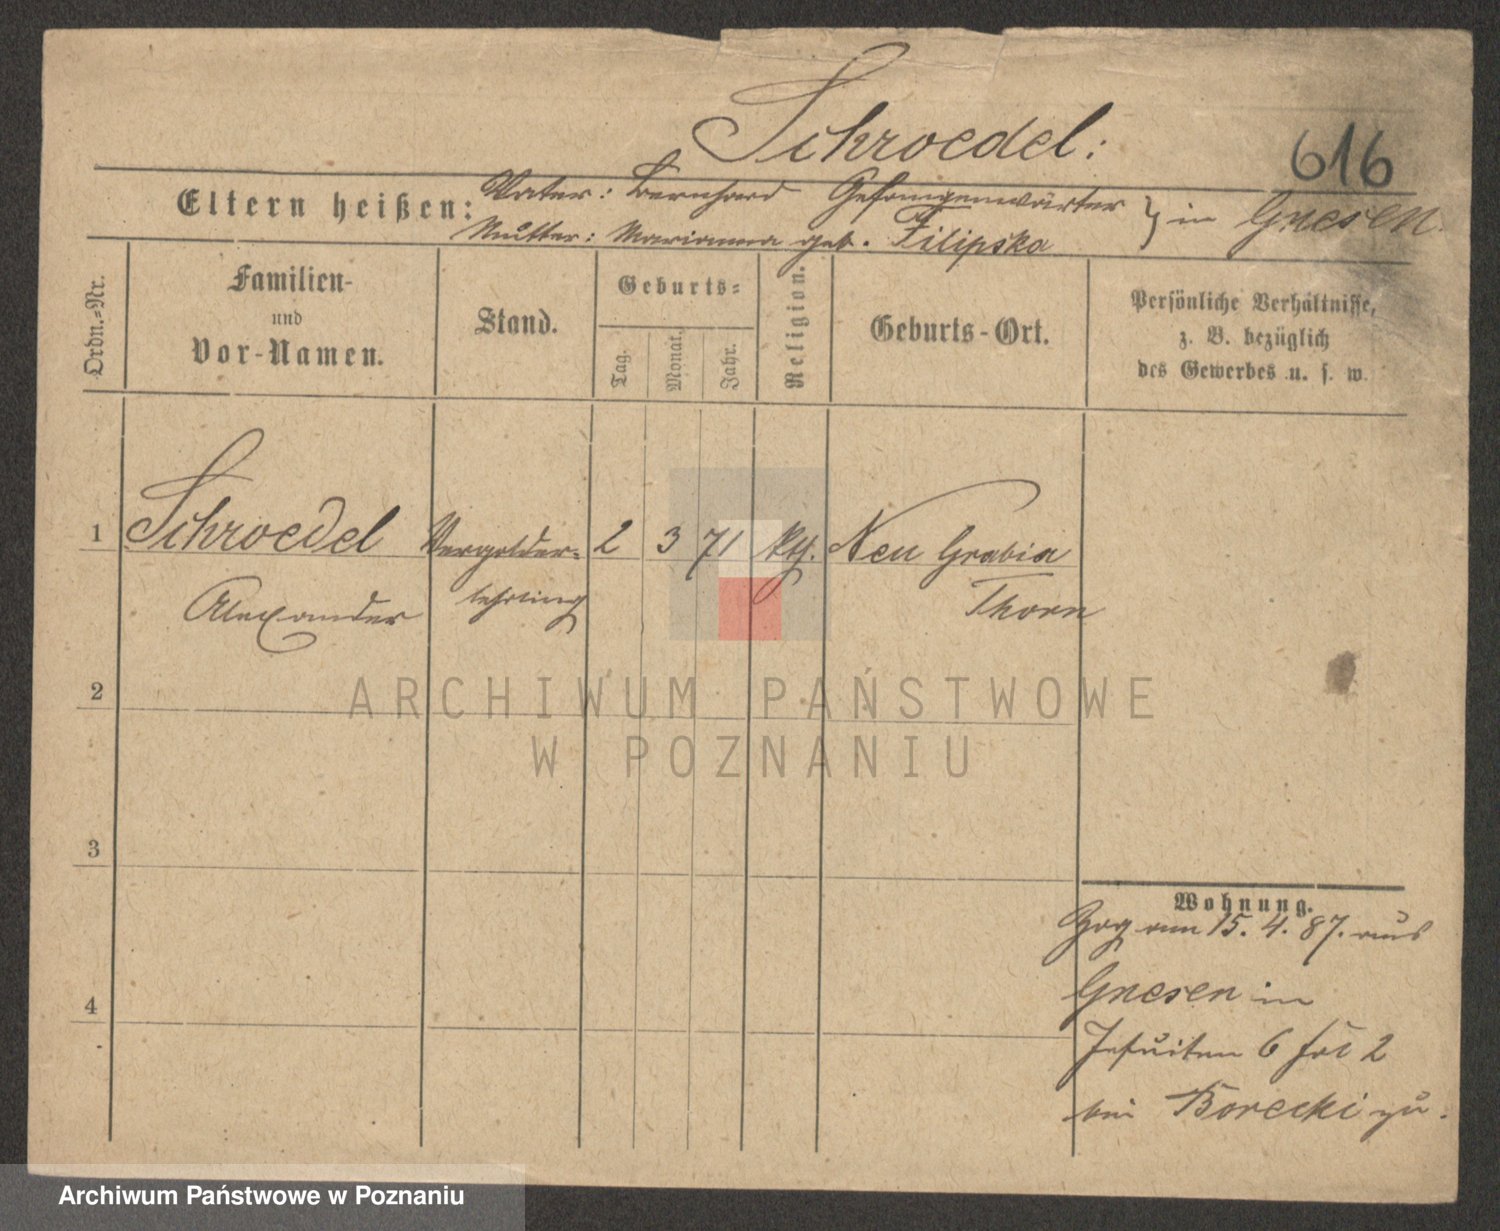 Schroedel:
616
Eltern heißen:
Vater: Bernhard Gefangenwärter } in Gnesen.
Mutter: Marianna geb. Filipska
Ordn.=Nr.
Familien-
und
Vor-Namen.
Stand.
Geburts=
Tag.
Monat.
Jahr.
Religion.
Geburts-Ort.
Persönliche Verhältnisse,
z. B. bezüglich
des Gewerbes u. s. w.
1 Schroedel Vergolder= 2 3 71 kth. Neu Grabia
Alexander lehrling Thorn
2
ARCHIWUM PAŃSTWOWE
W POZNANIU
3
Wohnung.
Zog am 15. 4. 87. aus
Gnesen in
4
Jesuiten 6 2
bei Borecki zu.
Archiwum Państwowe w Poznaniu